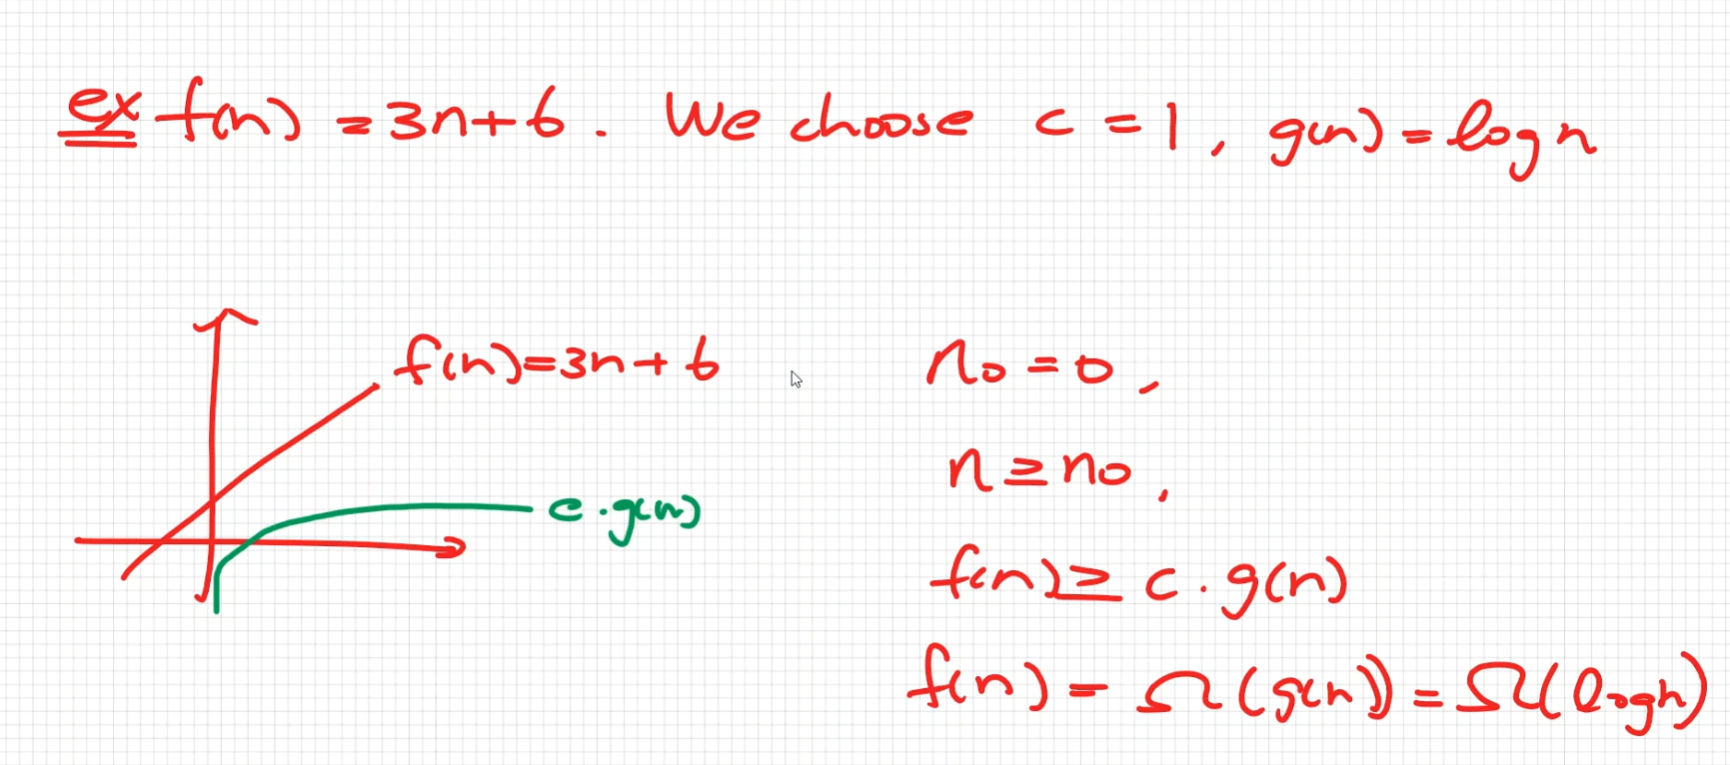 ex f(n) = 3n+6. We choose c = 1, g(n) = log n
f(n)=3n+6
c.g(n)
n₀ = 0,
n ≥ n₀,
f(n) ≥ c.g(n)
f(n) = Ω(g(n)) = Ω(logn)